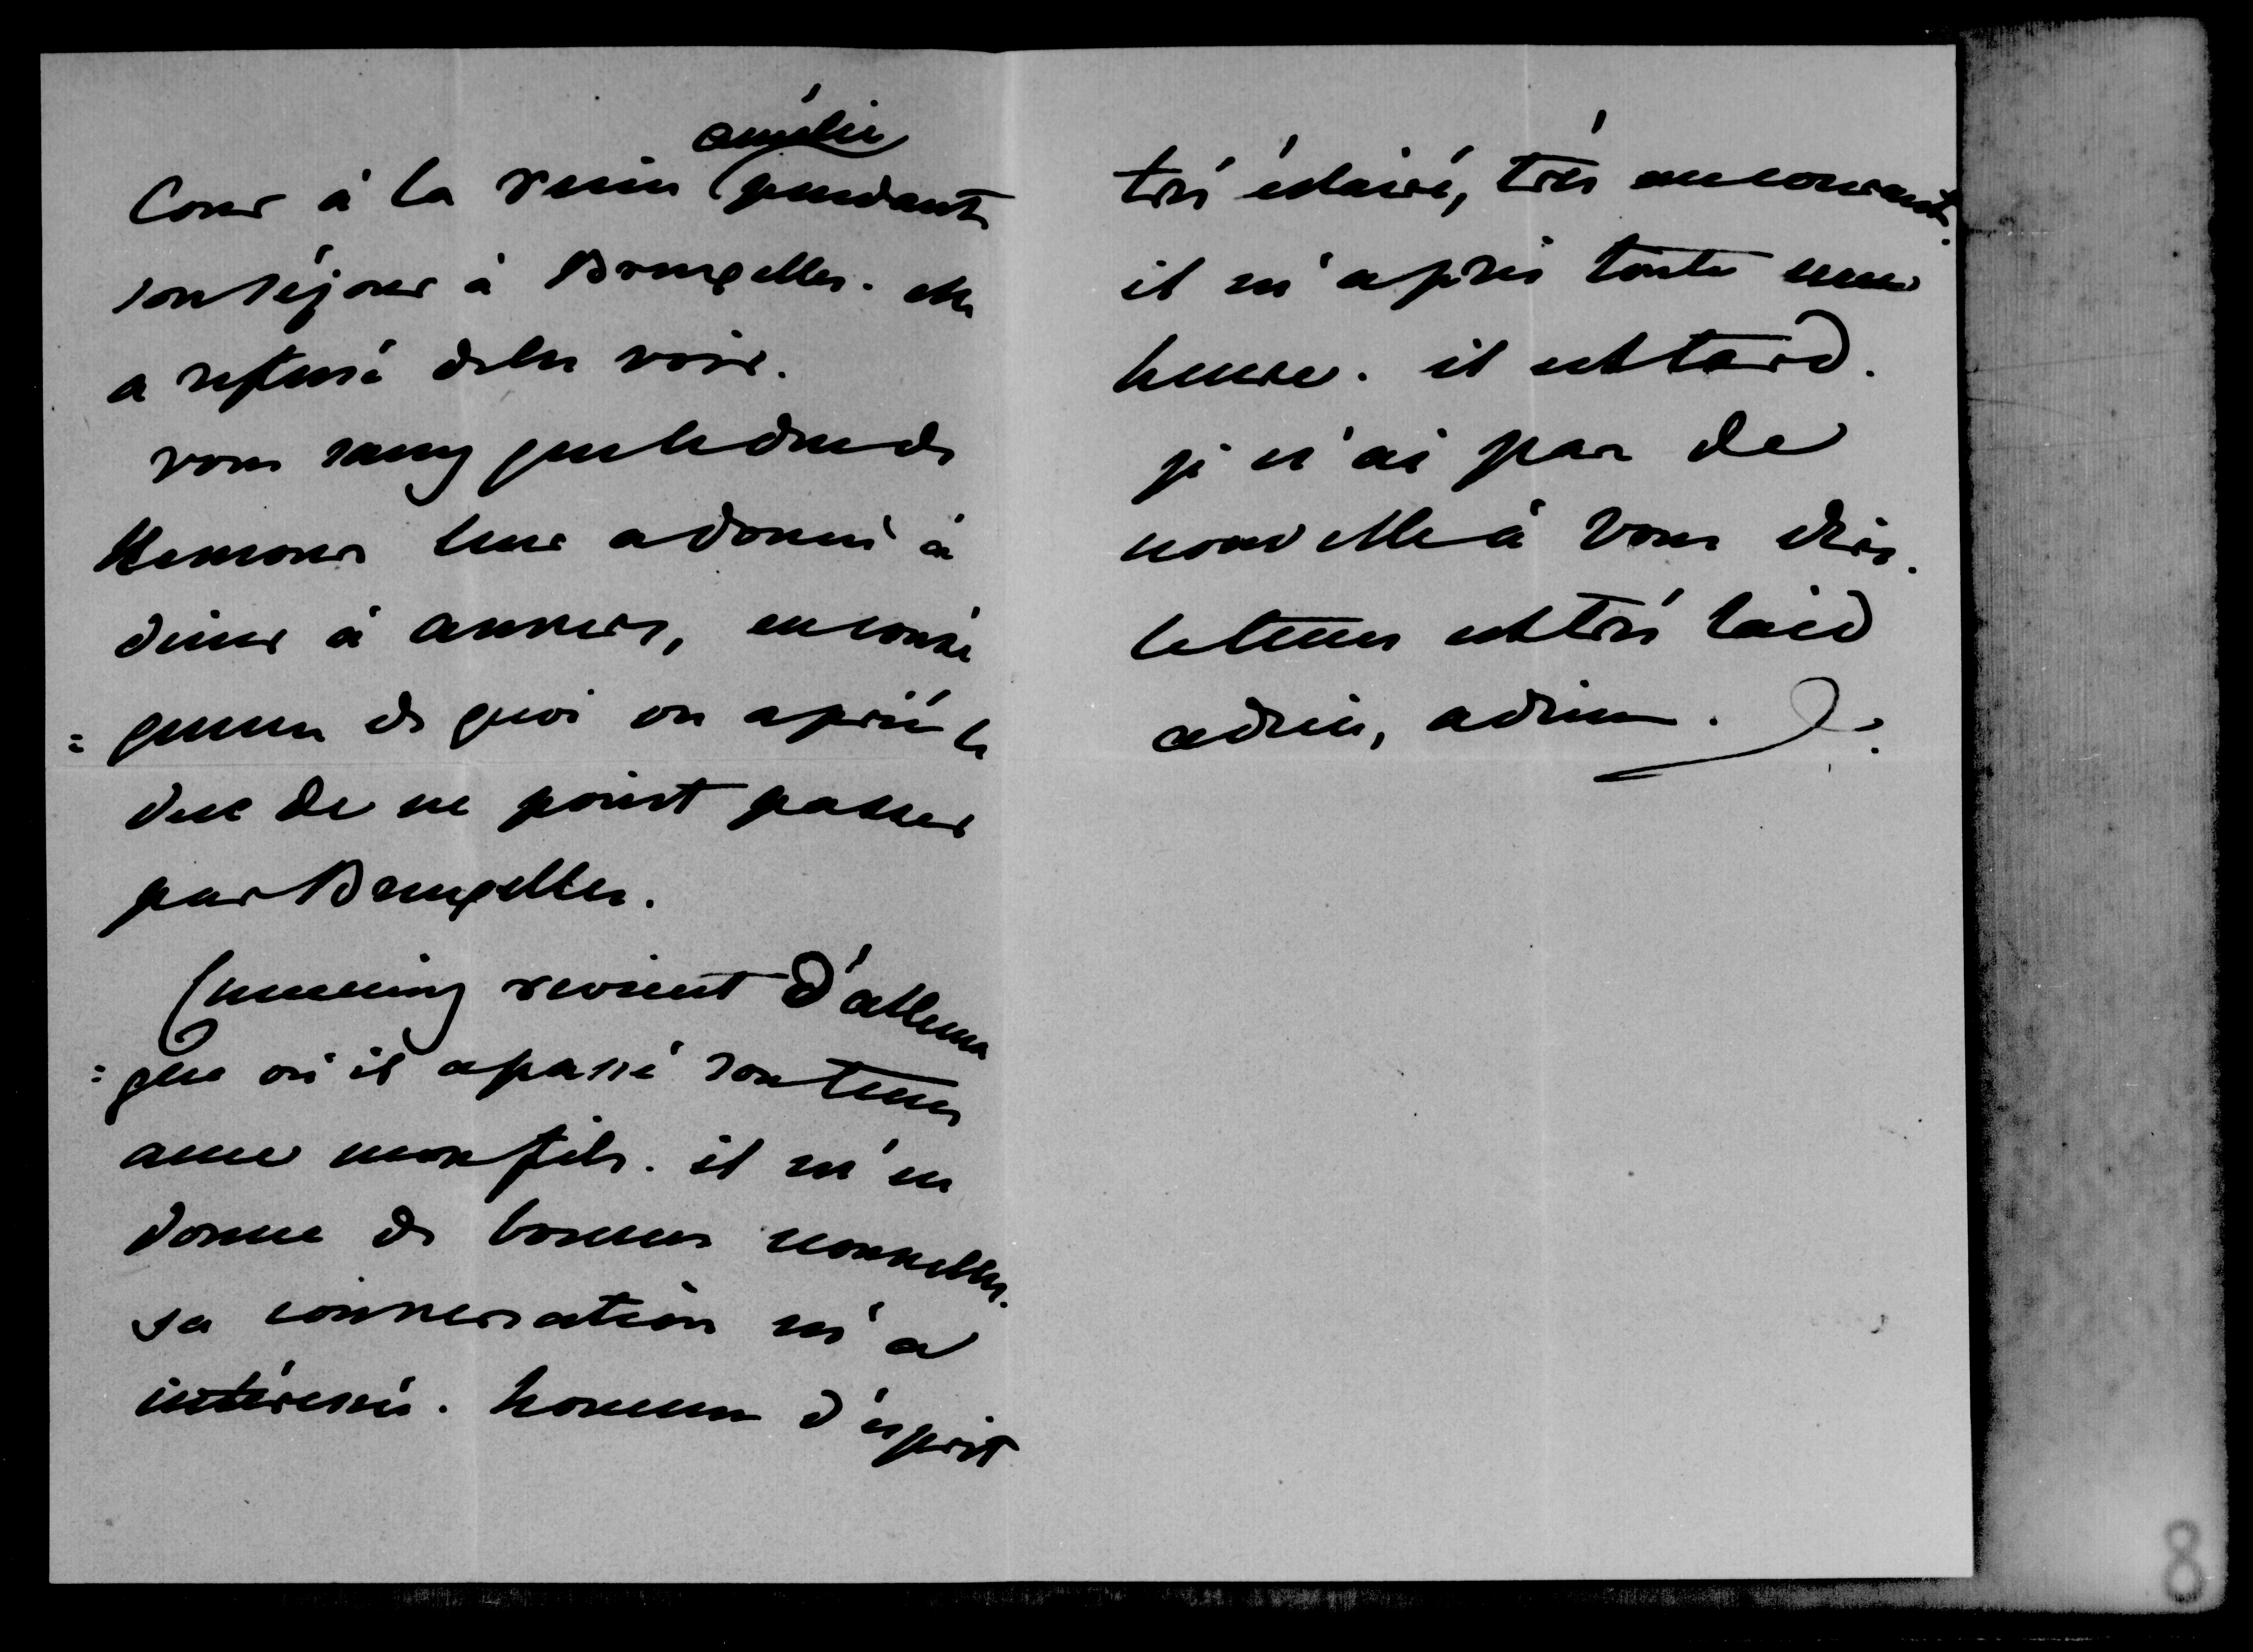 Cour à la reine amélie pendant
son séjour à Bruxelles. elle
a refusé de les voir.
vous savez que le duc de
Nemours leur a donné à
diner à anvers, en consé
= quence de quoi on a prié le
duc de ne point passer
par Bruxelles.
Cumming revient d'allema
= gne où il a passé son tems
avec mon fils. il m'en
donne de bonnes nouvelles.
sa conversation m'a
intéressé. homme d'esprit
très éclairé, très au courant.
il m'a pris toute une
heure. il est tard.
je n'ai pas de
nouvelle à vous dire.
le tems est très laid
adieu, adieu.
8